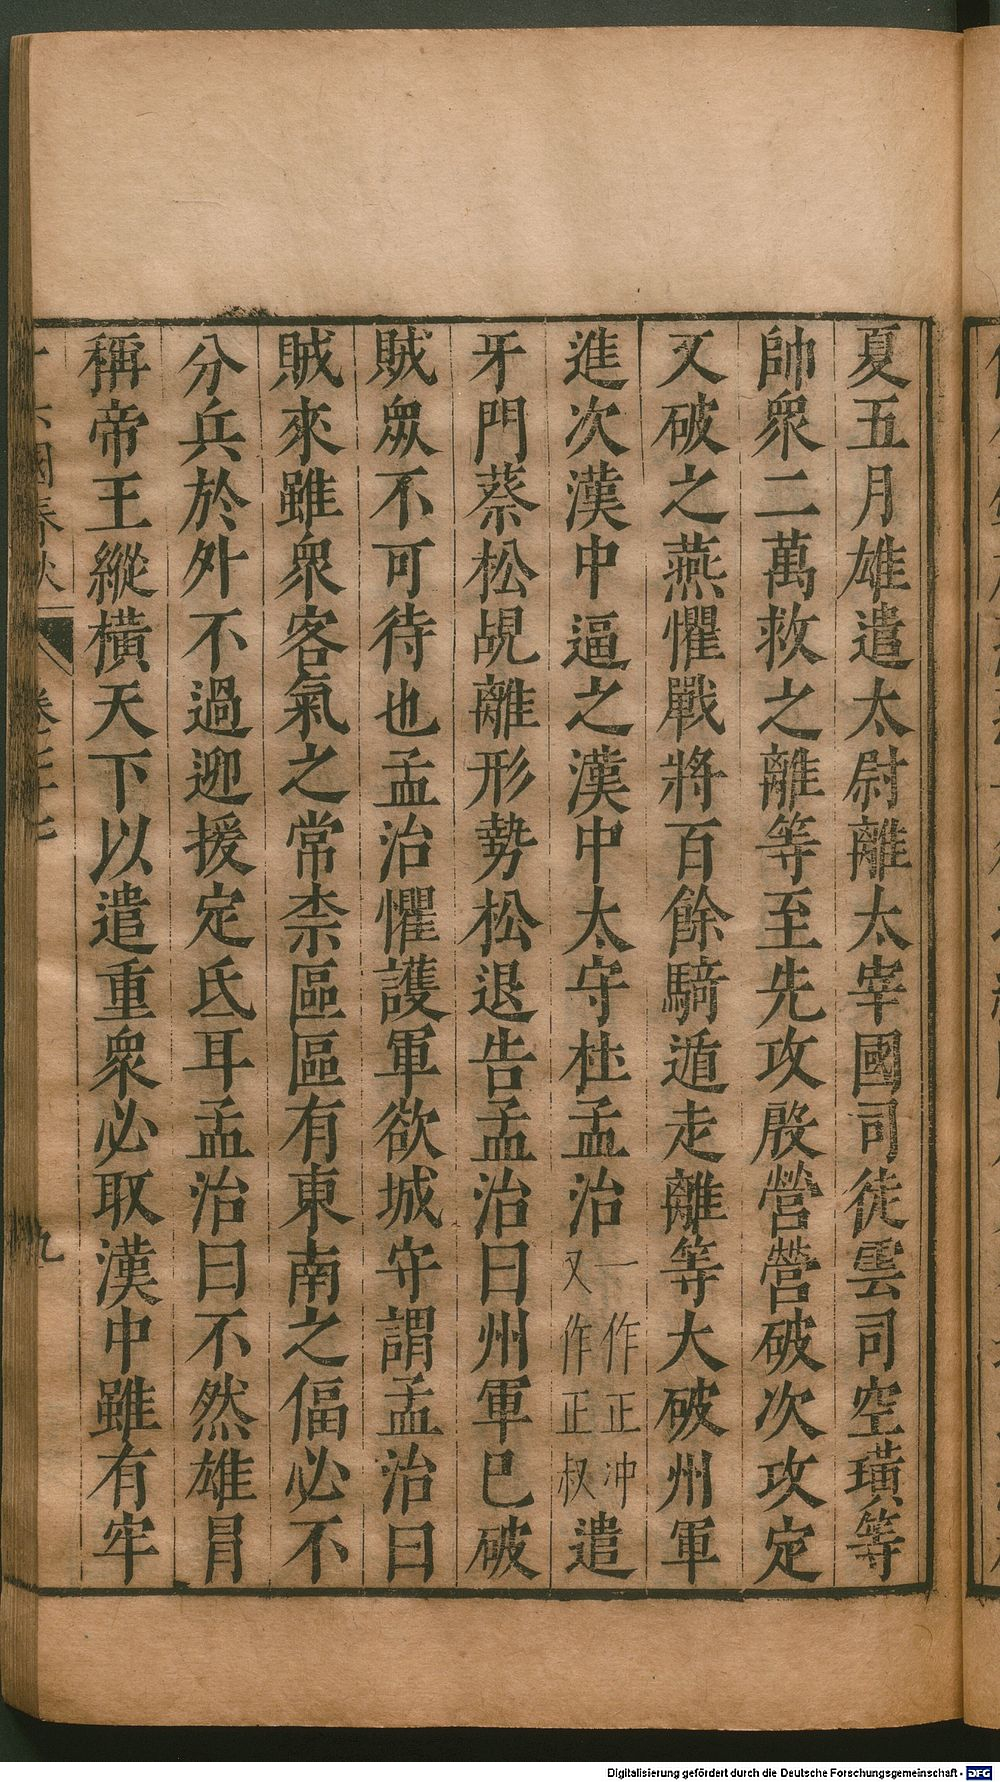 夏五月雄遣太尉離太宰國司徒雲司空璜等
帥衆二萬救之離等至先攻殷營營破次攻定
又破之燕懼戰將百餘騎遁走離等大破州軍
進次漢中逼之漢中太守杜孟治一作正冲又作正叔遣
牙門蔡松覘離形勢松退告孟治曰州軍已破
賊衆不可待也孟治懼護軍欲城守謂孟治曰
賊來雖衆客氣之常柰區區有東南之偪必不
分兵於外不過迎援定氐耳孟治曰不然雄冐
稱帝王縱橫天下以遣重衆必取漢中雖有牢
十六國春秋 卷之七十七 九
Digitalisierung gefördert durch die Deutsche Forschungsgemeinschaft - DFG